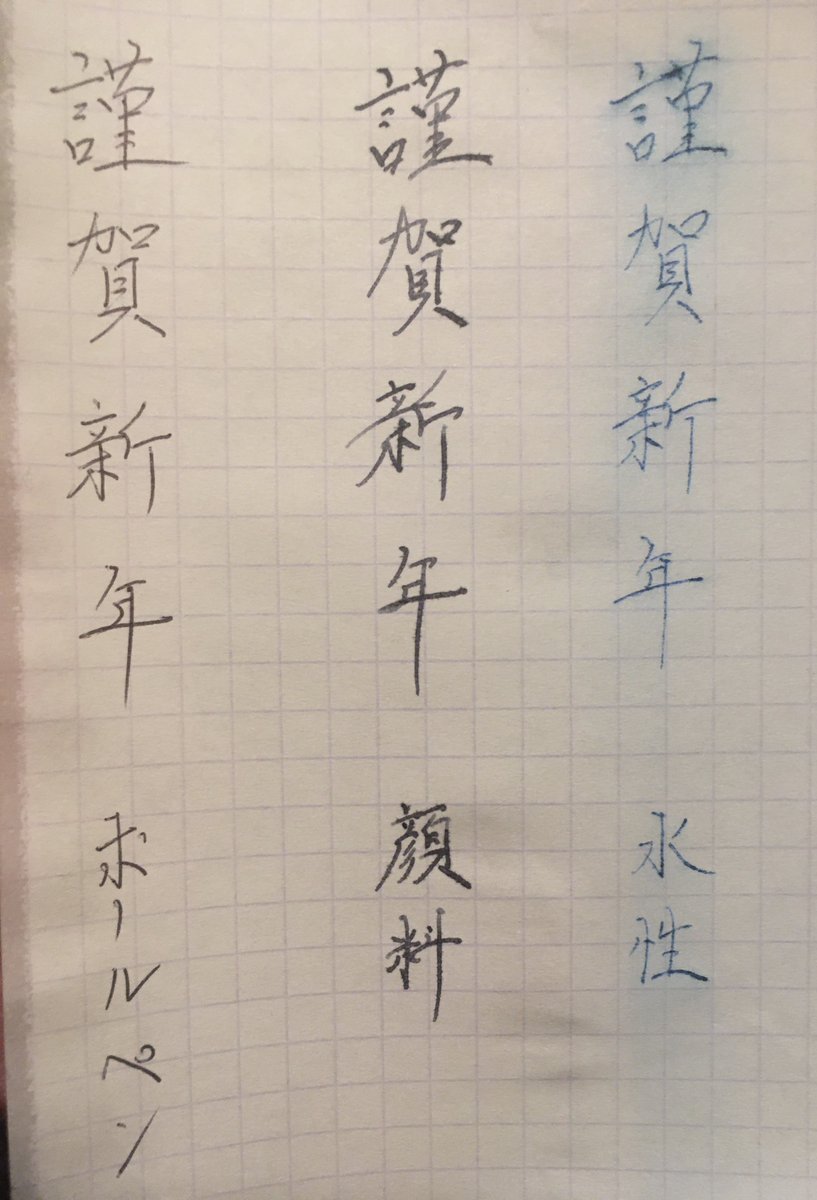 謹賀新年 水性
謹賀新年 顔料
謹賀新年 ボールペン